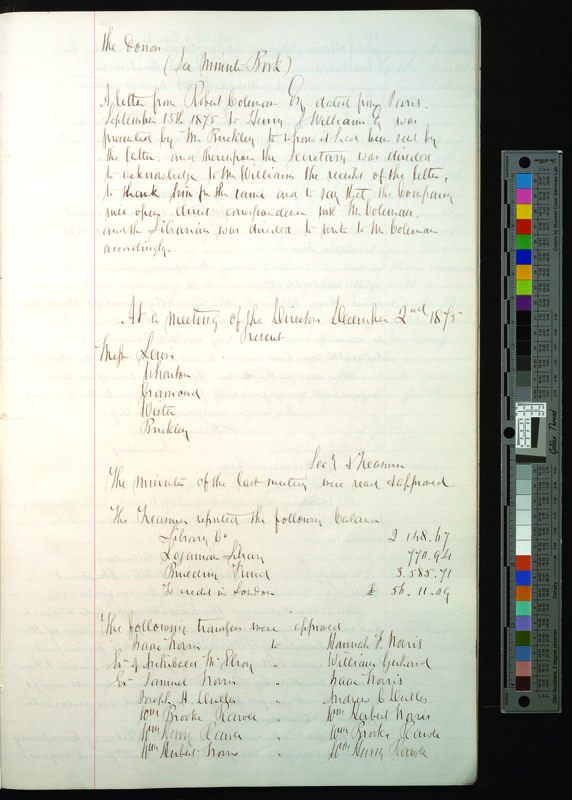 the Donors
(See Minute Book)
A letter from Robert Coleman Esq dated from Paris,
September 15th 1875 to Henry J Williams Esq was
presented by Mr Buckley to whom it had been sent by
the latter, and thereupon the Secretary was directed
to acknowledge to Mr Williams the receipt of the letter,
to thank him for the same and to say that the Company
will open direct correspondence with Mr Coleman,
and the Librarian was directed to write to Mr Coleman
accordingly.
At a meeting of the Directors December 2nd 1875
Present
Messrs Lewis
Wharton
Cramond
Wister
Buckley
Secy & Treasurer
The minutes of the last meeting were read & approved
The Treasurer reported the following balances
Library Co 2 148.67
Loganian Library 770.94
Building Fund 3.585.71
To credit in London £ 56-11-09
The following transfers were approved
Isaac Norris to Hannah F. Norris
Exr of Archibald McElroy " William Gerhard
Exr Samuel Norris " Isaac Norris
Joseph H. Dulles " Andrew C Dulles
Wm Brooke Rawle " Wm Herbert Norris
Wm Henry Rawle " Wm Brooke Rawle
Wm Herbert Norris " Wm Henry Rawle
Golden Thread